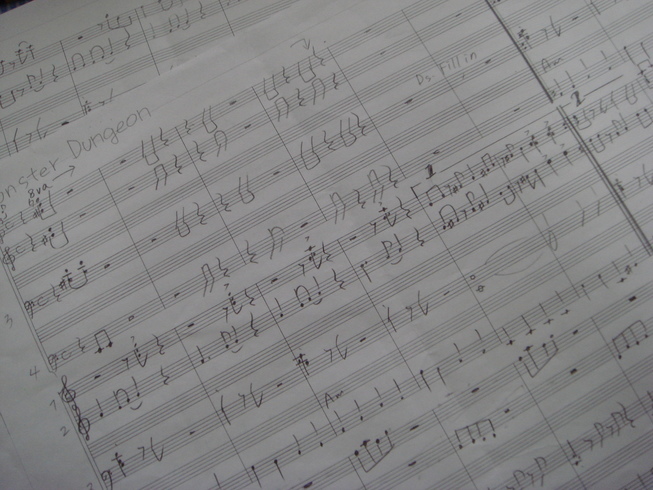 onster Dungeon
8va
Ds. Fill in
Am
1
2
3
4
1
2
Am